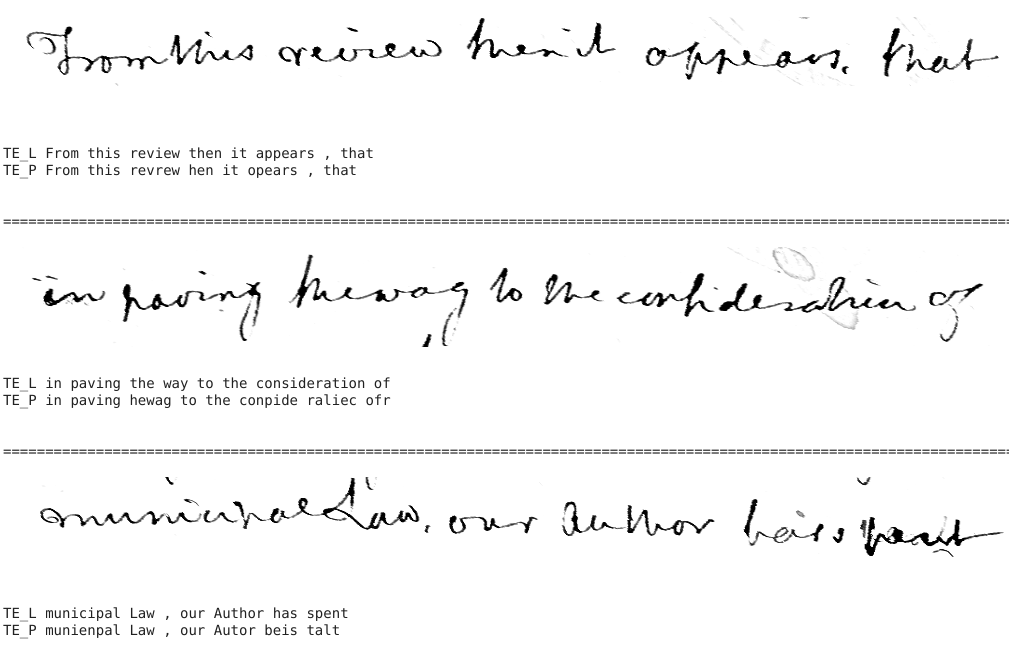 From this review then it appears, that
TE_L From this review then it appears , that
TE_P From this revrew hen it opears , that
in paving the way to the consideration of
TE_L in paving the way to the consideration of
TE_P in paving hewag to the conpide raliec ofr
municipal Law, our Author has spent
TE_L municipal Law , our Author has spent
TE_P munienpal Law , our Autor beis talt